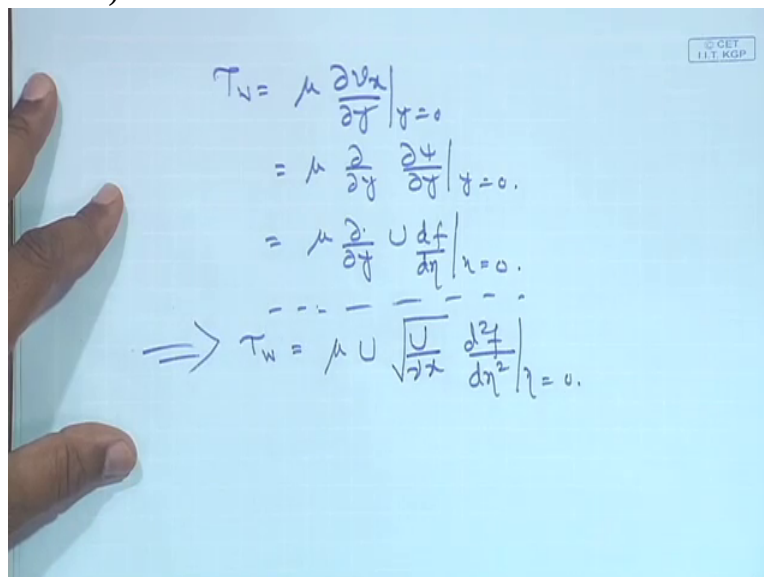 © CET
I.I.T. KGP
τw = μ ∂vx/∂y |y=0
= μ ∂/∂y ∂ψ/∂y |y=0.
= μ ∂/∂y U df/dη |η=0.
⇒ τw = μ U √(U/νx) d²f/dη² |η=0.